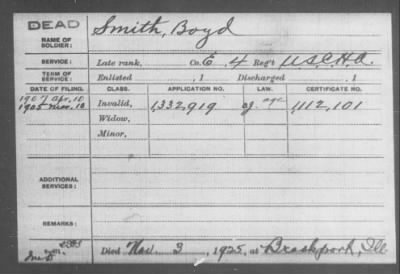 DEAD
NAME OF SOLDIER: Smith, Boyd
SERVICE: Late rank, Co. E 4 Reg't U.S.C.H.A.
TERM OF SERVICE: Enlisted , 1 Discharged , 1
DATE OF FILING. CLASS. APPLICATION NO. LAW. CERTIFICATE NO.
1907 Apr. 10
1905 Mar. 10 Invalid, 1,332,919 age 1,112,101
Widow,
Minor,
ADDITIONAL SERVICES:
REMARKS:
Died Nov. 3, 1925, at Brookport, Ill